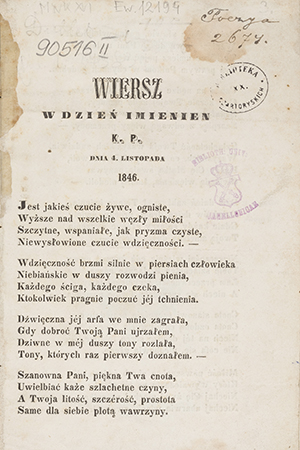 Ew. 12199
90516 II
Poezya
2677.
BIBLIOTEKA
XX.
CZARTORYSKICH
WIERSZ
W DZIEŃ IMIENIEN
K. P.
DNIA 4. LISTOPADA
1846.
Jest jakieś czucie żywe, ogniste,
Wyższe nad wszelkie węzły miłości
Szczytne, wspaniałe, jak pryzma czyste,
Niewysłowione czucie wdzięczności. —
Wdzięczność brzmi silnie w piersiach człowieka
Niebiańskie w duszy rozwodzi pienia,
Każdego ściga, każdego czeka,
Ktokolwiek pragnie poczuć jéj tchnienia.
Dźwięczna jéj arfa we mnie zagrała,
Gdy dobroć Twoją Pani ujrzałem,
Dziwne w méj duszy tony rozlała,
Tony, których raz pierwszy doznałem. —
Szanowna Pani, piękna Twa cnota,
Uwielbiać każe szlachetne czyny,
A Twoja litość, szczérość, prostota
Same dla siebie plotą wawrzyny.